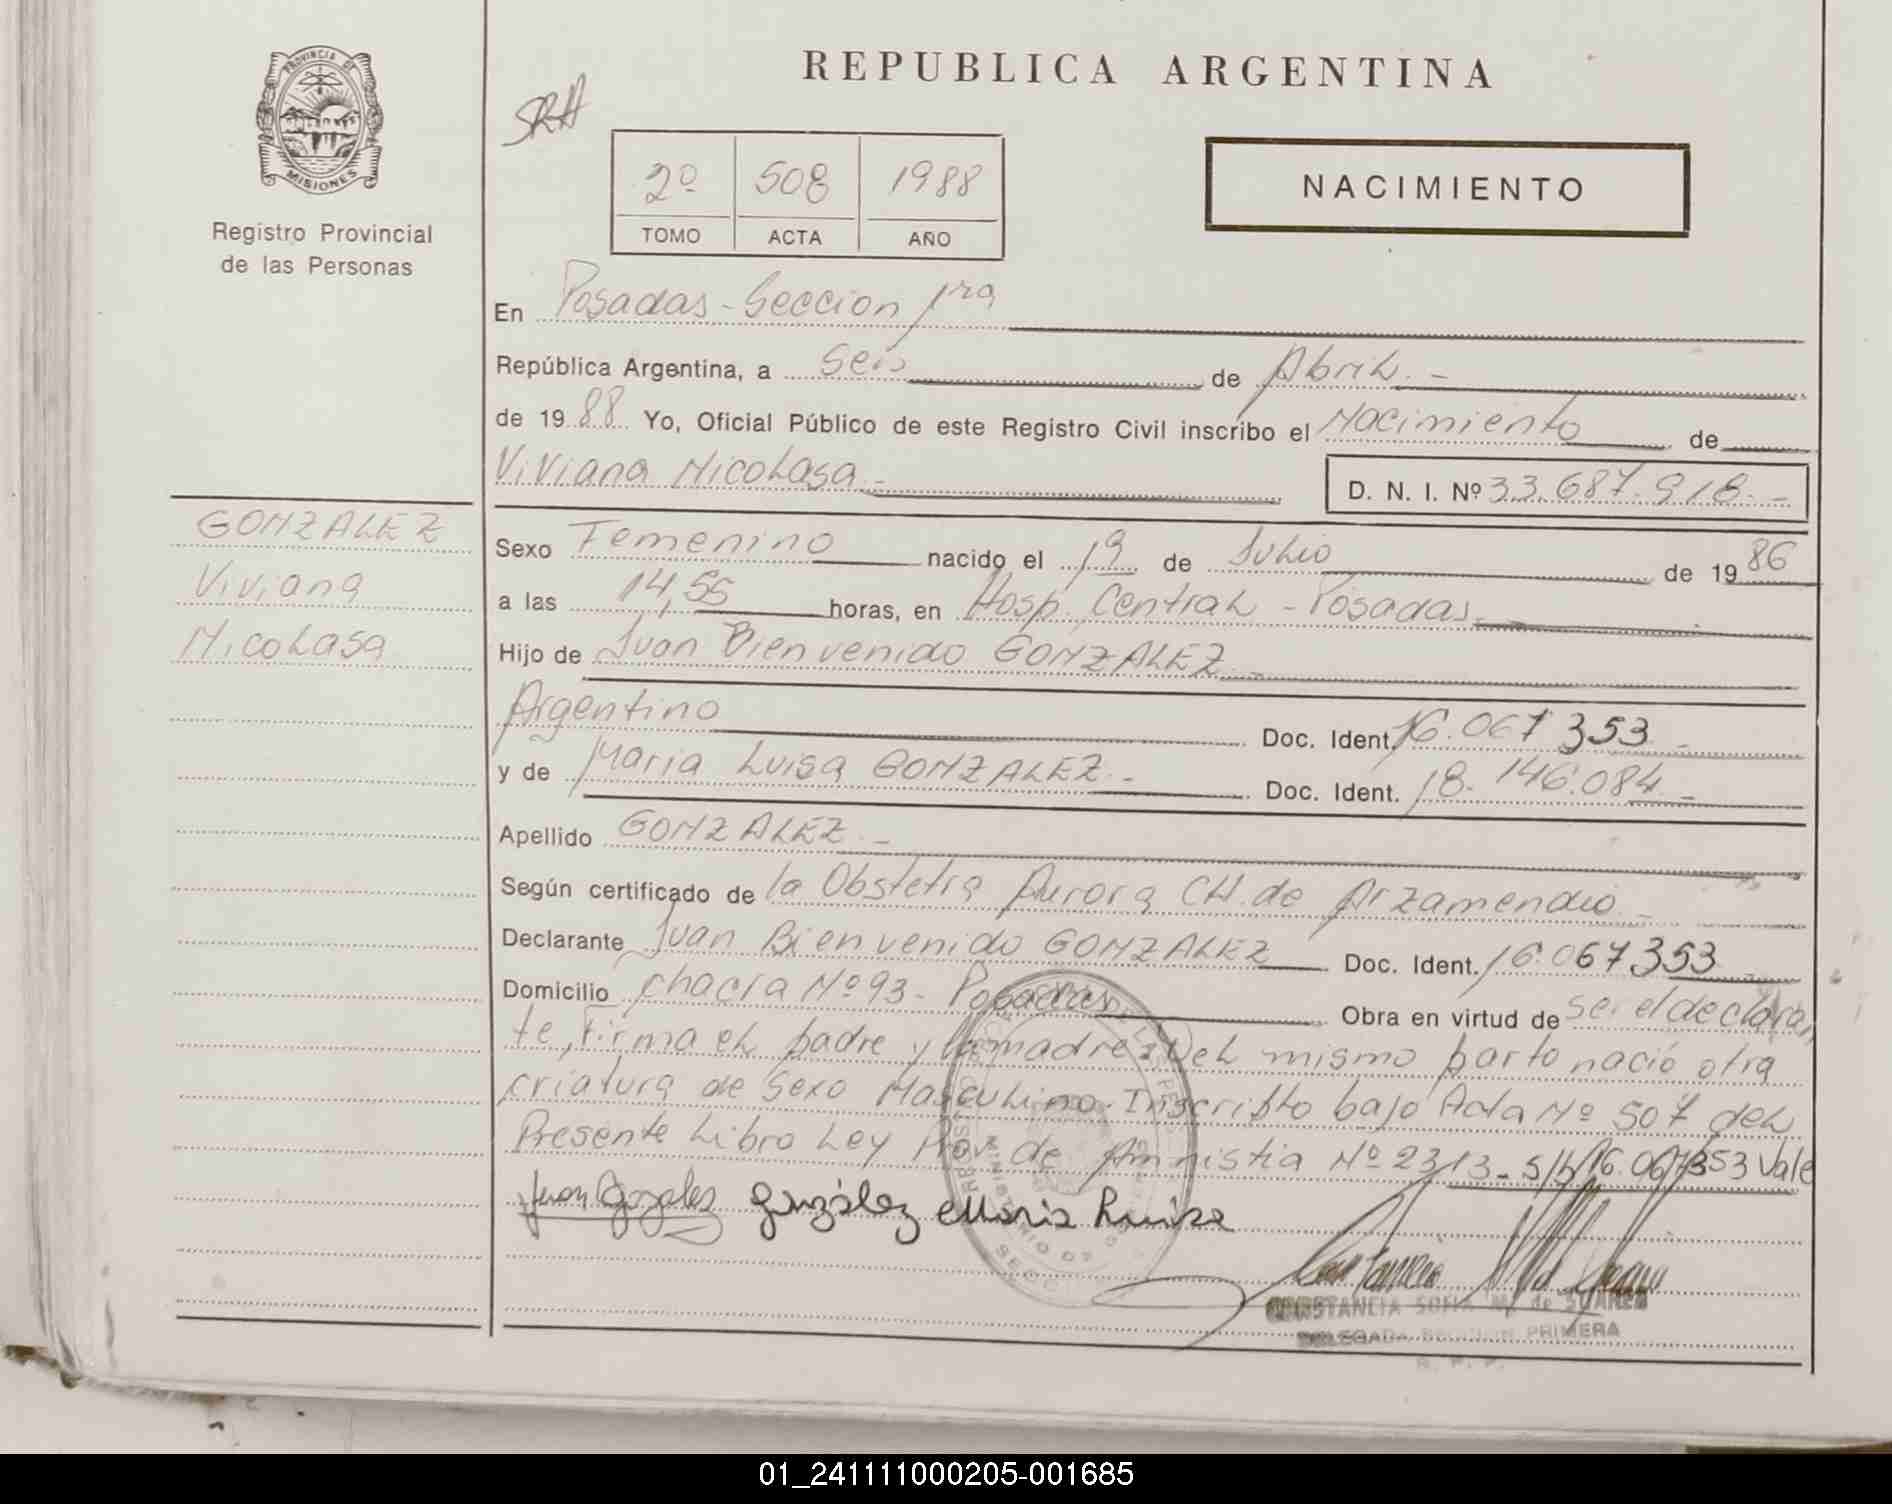 PROVINCIA DE
MISIONES
Registro Provincial
de las Personas
REPUBLICA ARGENTINA
SRA
2º 508 1988
TOMO ACTA AÑO
NACIMIENTO
En Posadas - Seccion 1ra
República Argentina, a Seis de Abril. -
de 1988 Yo, Oficial Público de este Registro Civil inscribo el Nacimiento de
Viviana Nicolasa - D. N. I. Nº 33.687.918. -
GONZALEZ
Viviana
Nicolasa
Sexo Femenino nacido el 19 de Julio de 1986
a las 14,55 horas, en Hosp. Central - Posadas.
Hijo de Juan Bienvenido GONZALEZ -
Argentino Doc. Ident. 16.067 353 -
y de Maria Luisa GONZALEZ. - Doc. Ident. 18. 146.084 -
Apellido GONZALEZ -
Según certificado de la Obstetra Aurora CH. de Arzamendio -
Declarante Juan Bienvenido GONZALEZ Doc. Ident. 16.067353
Domicilio chacra Nº 93 - Posadas Obra en virtud de ser el declaran
te, Firma el padre y la madre: Del mismo parto nació otra
criatura de Sexo Masculino. Inscripto bajo Acta Nº 507 del
Presente Libro Ley Prov. de Amnistia Nº 2313 - s/b/16.067353 Vale
Juan Gozalez González Maria Luisa
CONSTANCIA SOFIA M. de SUAREZ
DELEGADA SECCION PRIMERA
R. P. P.
01_241111000205-001685